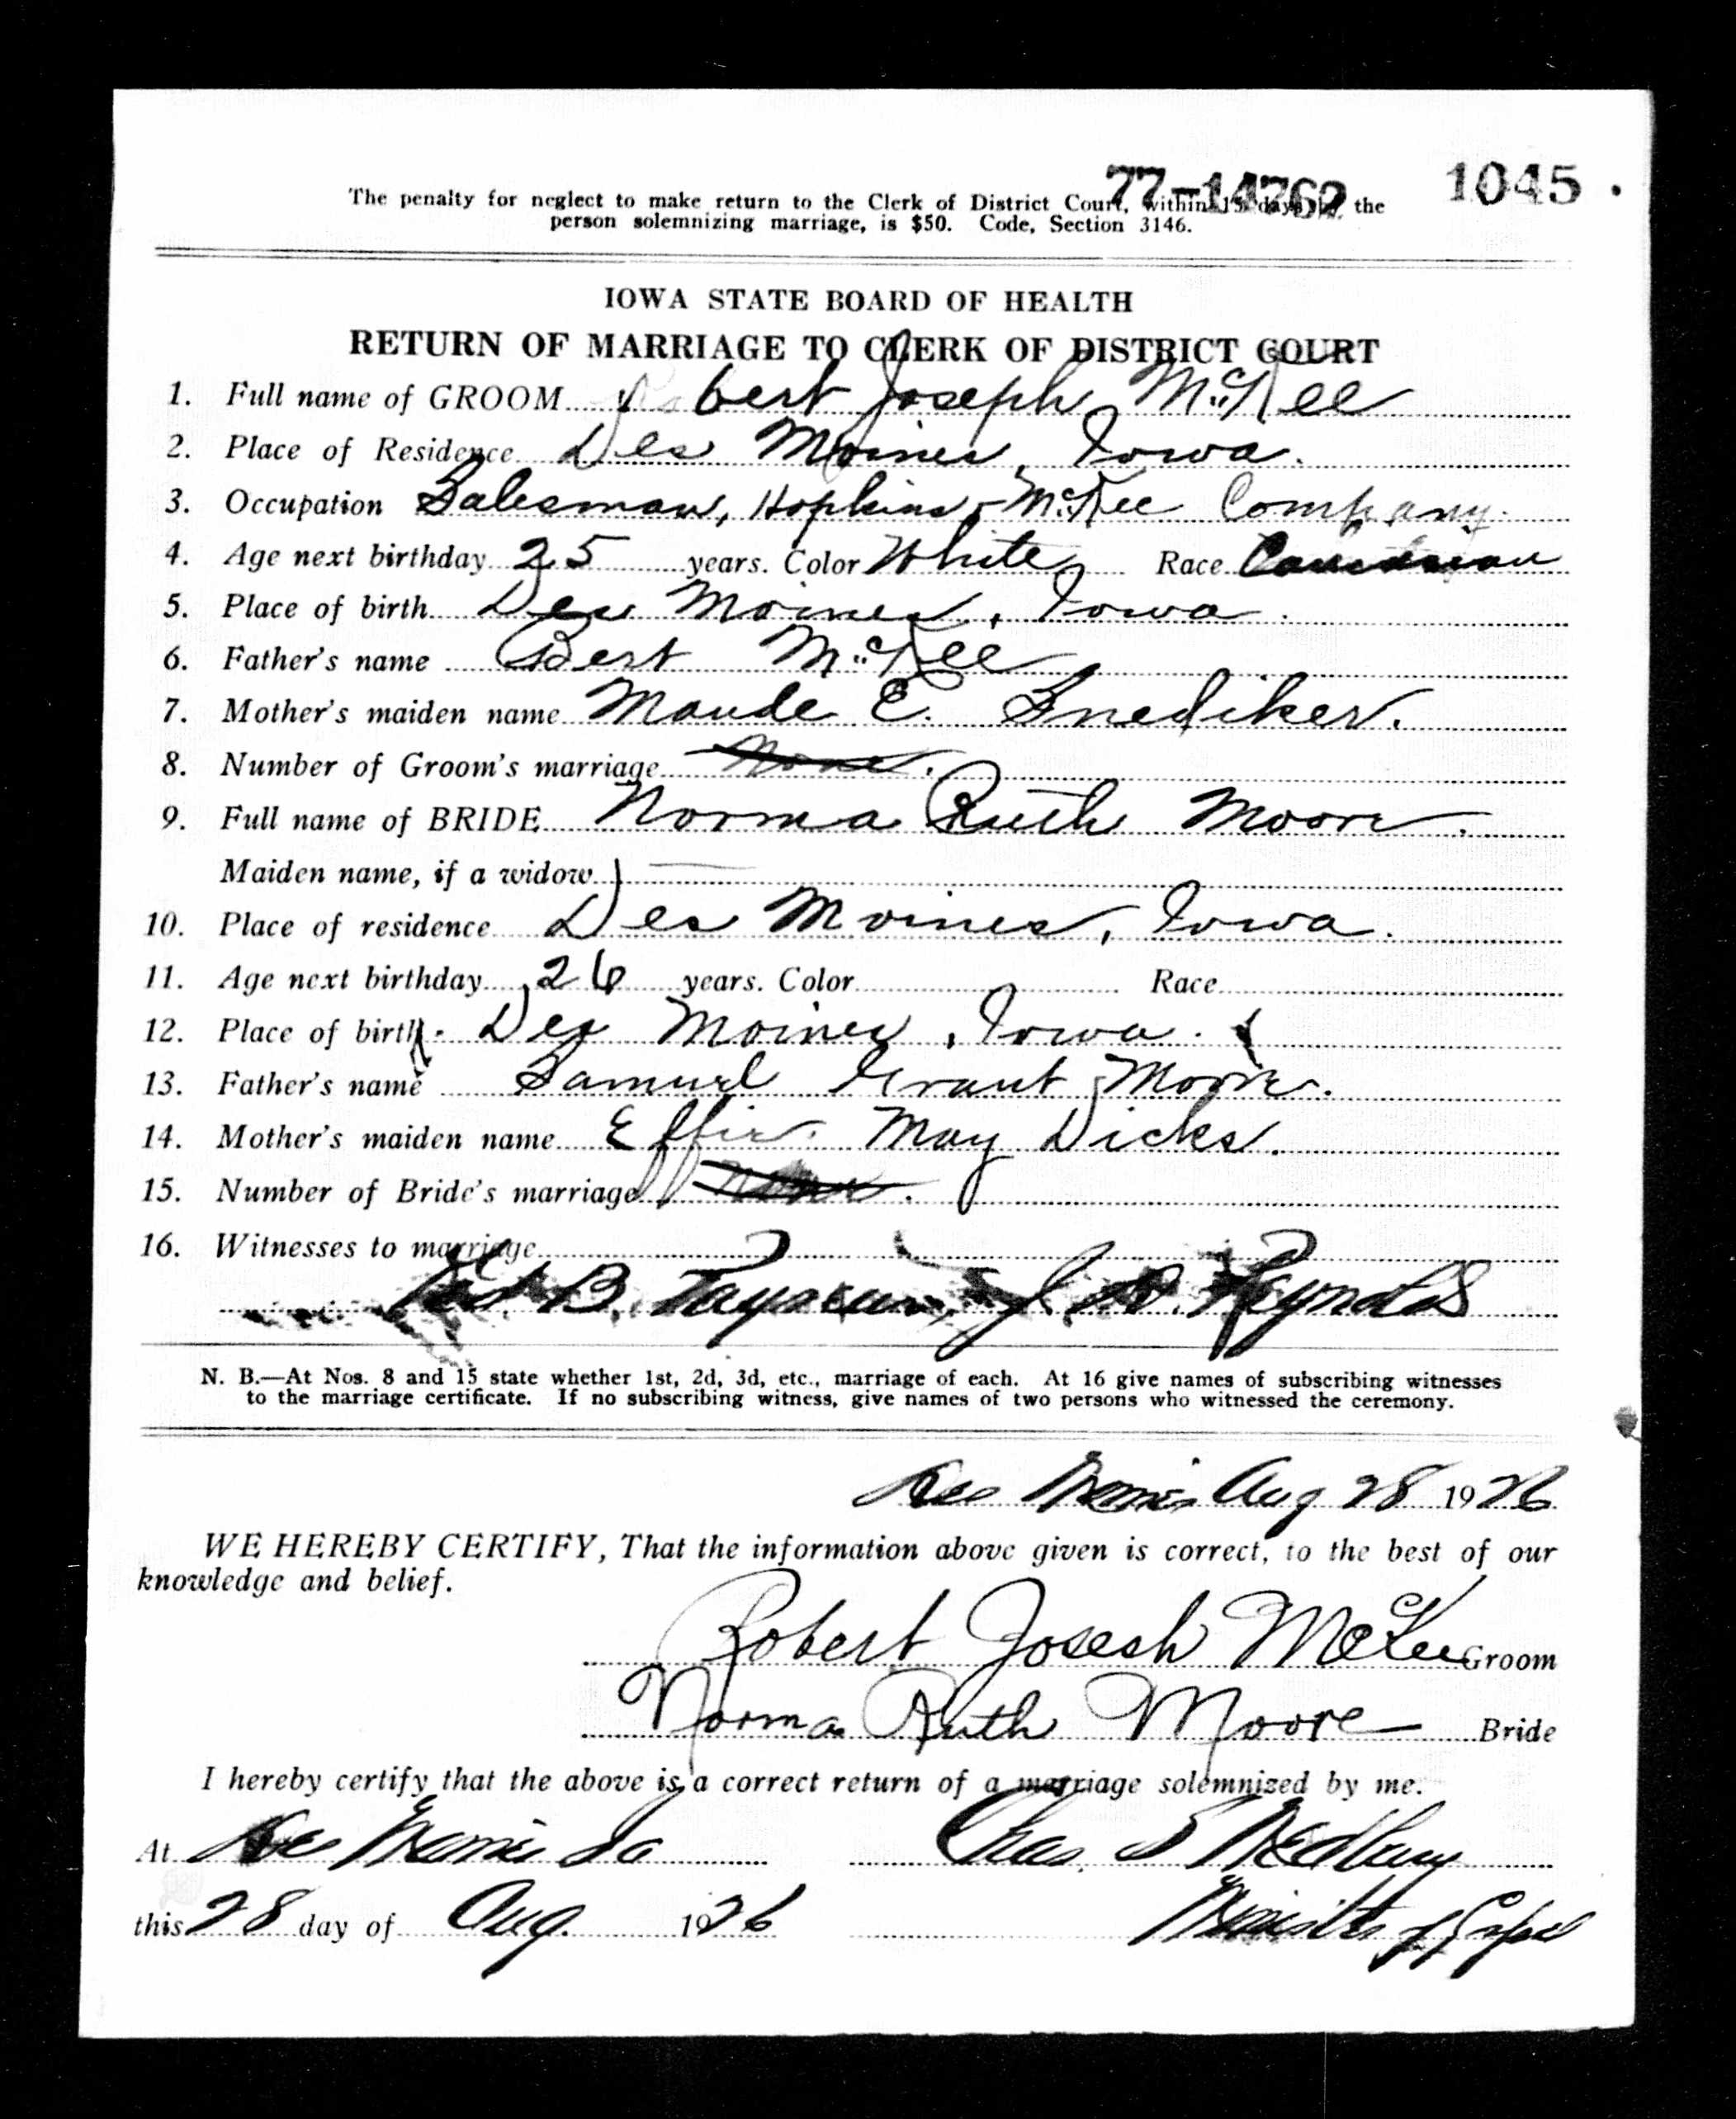 77-14762 1045
The penalty for neglect to make return to the Clerk of District Court, within 15 days by the
person solemnizing marriage, is $50. Code, Section 3146.
IOWA STATE BOARD OF HEALTH
RETURN OF MARRIAGE TO CLERK OF DISTRICT COURT
1. Full name of GROOM Robert Joseph McKee
2. Place of Residence Des Moines, Iowa.
3. Occupation Salesman, Hopkins-McKee Company.
4. Age next birthday 25 years. Color White Race
5. Place of birth Des Moines, Iowa.
6. Father's name Bert McKee
7. Mother's maiden name Maude E. Snediker.
8. Number of Groom's marriage None.
9. Full name of BRIDE Norma Ruth Moore.
Maiden name, if a widow
10. Place of residence Des Moines, Iowa.
11. Age next birthday 26 years. Color Race
12. Place of birth Des Moines, Iowa.
13. Father's name Samuel Grant Moore.
14. Mother's maiden name Effie May Dicks.
15. Number of Bride's marriage None.
16. Witnesses to marriage
B. J. Reynolds
N. B.—At Nos. 8 and 15 state whether 1st, 2d, 3d, etc., marriage of each. At 16 give names of subscribing witnesses
to the marriage certificate. If no subscribing witness, give names of two persons who witnessed the ceremony.
Des Moines Aug 28 1926
WE HEREBY CERTIFY, That the information above given is correct, to the best of our
knowledge and belief.
Robert Joseph McKee Groom
Norma Ruth Moore Bride
I hereby certify that the above is a correct return of a marriage solemnized by me.
At Des Moines Ia Chas. S Medbury
this 28 day of Aug. 1926 Minister of Gospel